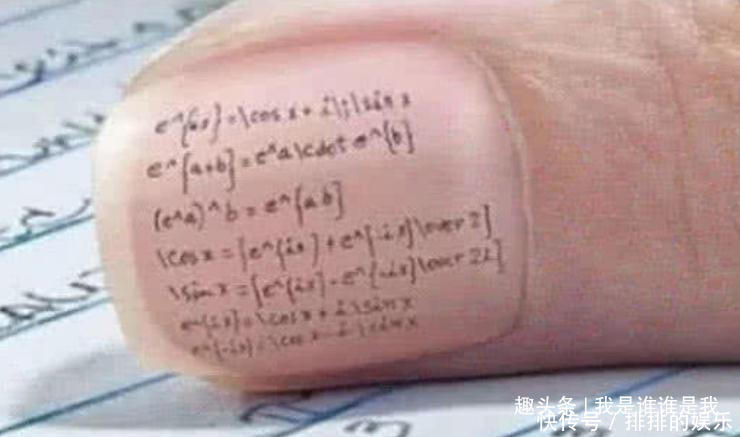 e^{ix}=\cos x + i\;\sin x
e^{a+b}=e^a\cdot e^{b}
(e^a)^b = e^{ab}
\cos x = [e^{ix} + e^{-ix}\over 2]
\sin x = [e^{ix} - e^{-ix}\over 2i]
e^{ix}=\cos x + i \sin x
e^{-ix}=\cos x - i \sin x
3
趣头条 | 我是谁谁是我
快传号 / 排排的娱乐